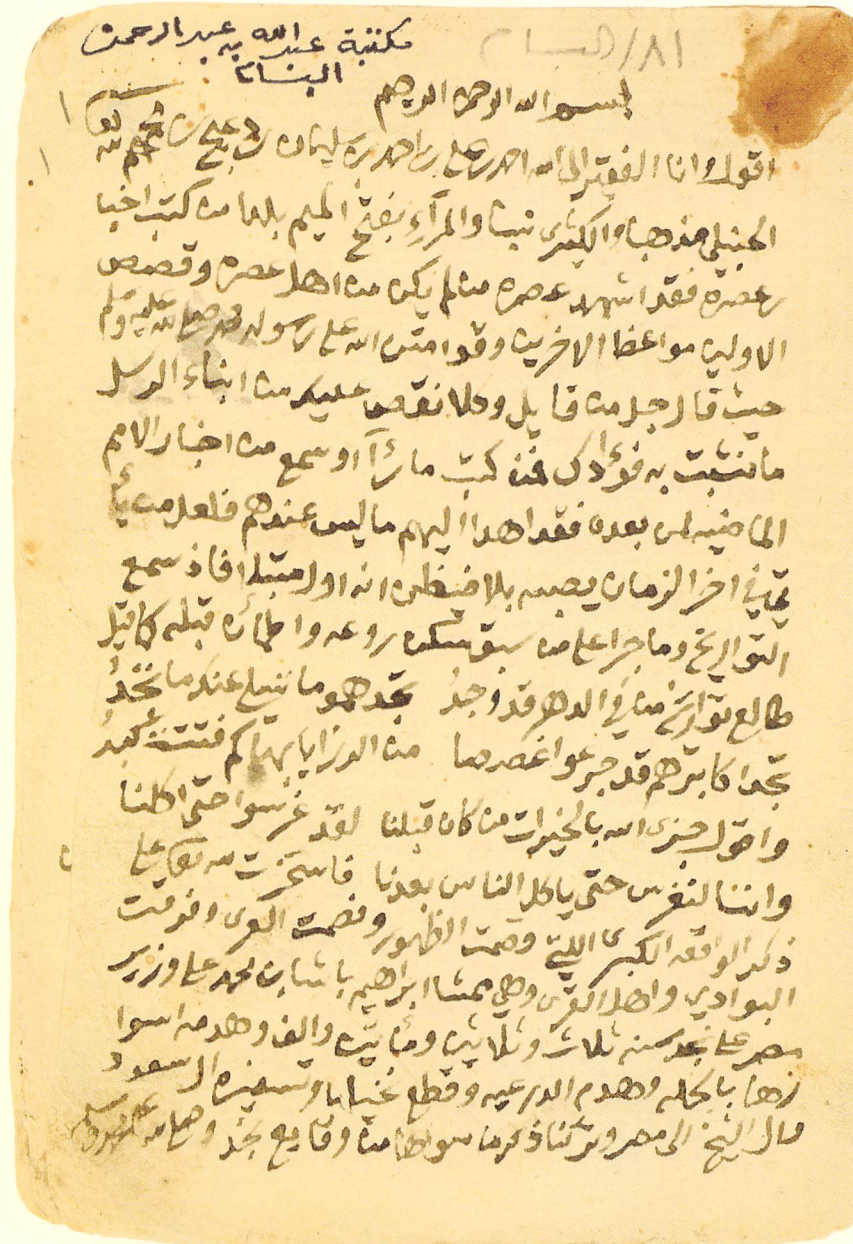 مكتبة عبد الله بن عبد الرحمن
البسام
٨١/البسام
بسم الله الرحمن الرحيم
اقول وانا الفقير الى الله احمد بن علي بن احمد بن سليمان بن
الحنبلي مذهبا والكثيري نسبا والمراء بفتح الميم بلدا من كتب اخبا
ر عصره فقد اشهد عصره من لم يكن من اهل عصره وقصص
الاولين مواعظ الاخرين وقد امتن الله على رسوله محمد صلى الله عليه وسلم
حيث قال جل من قايل وكلا نقص عليك من انباء الرسل
ما نثبت به فؤادك فمن كتب ما رٱ او سمع من اخبار الامم
الماضيه لمن بعده فقد اهدا اليهم ما ليس عندهم فلعل من يأ
تي في اخر الزمان يصيبه بلا فيظن انه اول مبتلا فاذ سمع
التواريخ وما جرا على من سبق سكن روعه واطمأن قبله كما قيل
طالع تواريخ من في الدهر قد وجدُ تجد هموما تسلي عنك ما تجدُ
تجد اكابرهم قد جرعوا غصصا من الرزايا بها كم فتتت كبدُ
واقول جزى الله بالخيرات من كان قبلنا لقد غرسوا حتى اكلنا
واننا لنغرس حتى ياكل الناس بعدنا فاستخرت الله تعالى على
ذكر الواقعه الكبرى اللتي وقصمت الظهور وفصمت العرى وفرقت
البوادي واهل القرى وهي ممشا ابراهيم باشا بن محمد علي وزير
مصر على نجد سنه ثلاث وثلاثين ومأتين والف وهدمه اسوا
رها بالجمله وهدم الدرعيه وقطع نخيلها وتسفيره ال سعود
وال الشيخ الى مصر وتركنا ذكر ما سواها من وقايع نجد وصلى الله على محمد وسلم